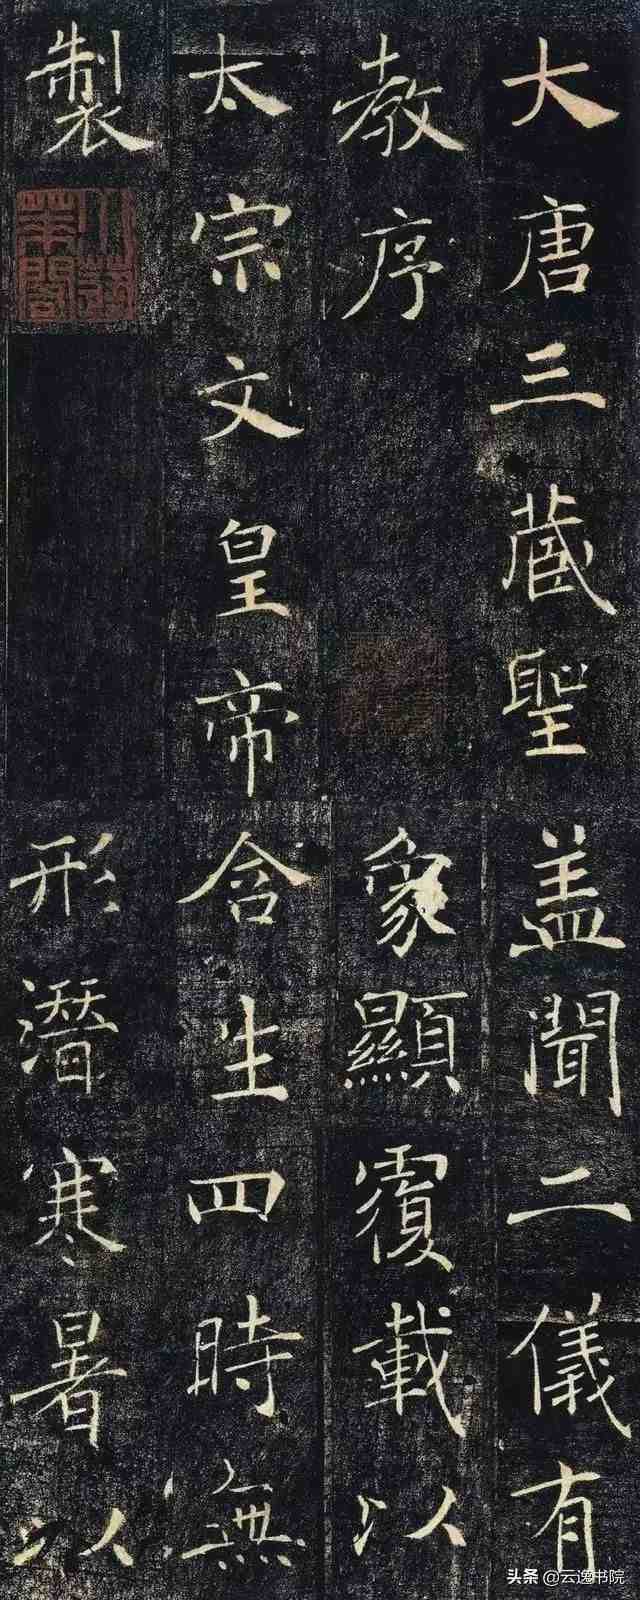 大唐三藏聖
教序
太宗文皇帝
製
盖聞二儀有
象顯覆載以
含生四時無
形潛寒暑以
头条 @云逸书院